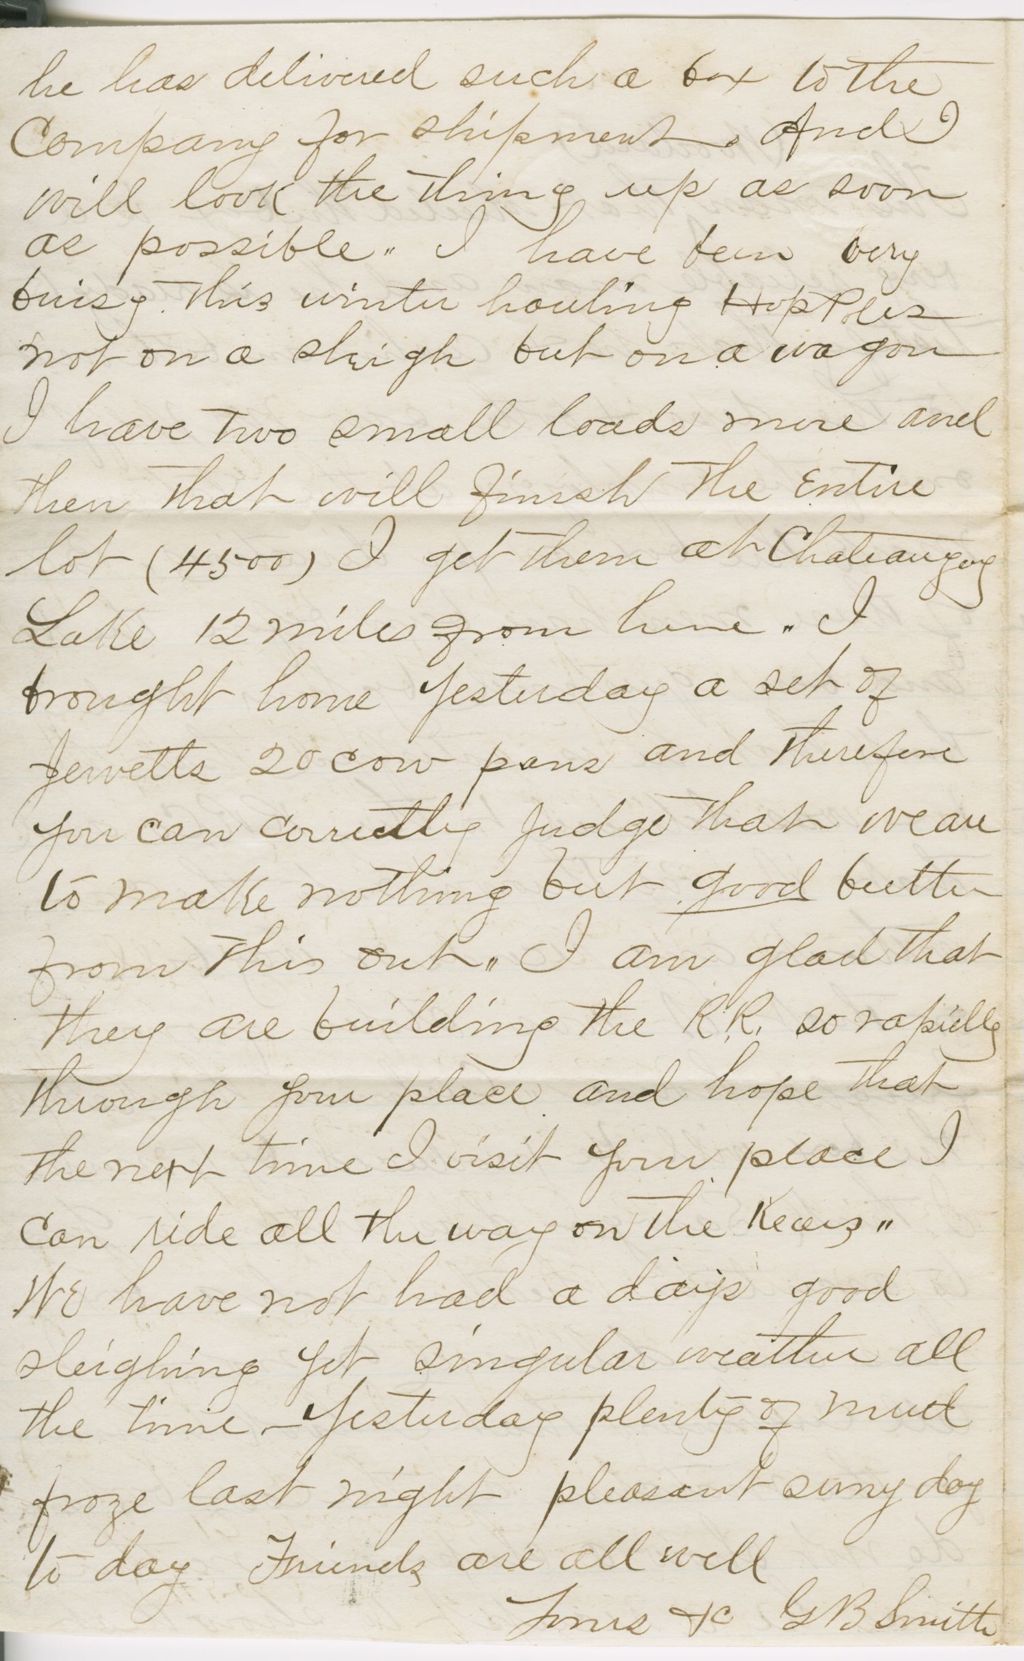 he has delivered such a box to the
Company for shipment. And I
will look the thing up as soon
as possible." I have been very
buisy this winter hauling Hop Poles
not on a sleigh but on a wagon
I have two small loads more and
then that will finish the Entire
lot (4500) I get them at Chateaugay
Lake 12 miles from here." I
brought home yesterday a set of
Jewetts 20 cow pans and therefore
you can correctly judge that we are
to make nothing but good butter
from this out." I am glad that
they are building the R.R. so rapidly
through your place and hope that
the next time I visit your place I
can ride all the way on the Kears"
We have not had a days good
sleighing yet singular weather all
the time - Yesterday plenty of mud
froze last night pleasant suny day
to day. Friends are all well
Yours &c G B Smith